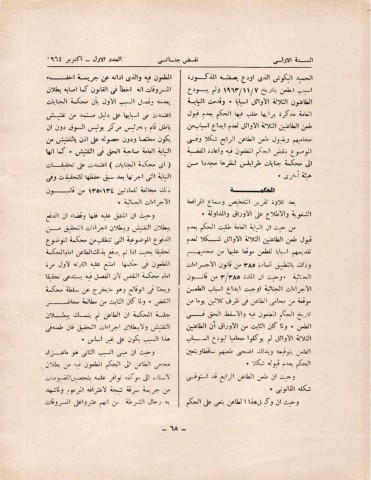 السنة الاولى
نقض جنائي
العدد الاول – اكتوبر ١٩٦٤
الحميد البكوش الذى اودع بصفته المذكورة
اسباب الطعن بتاريخ ١٩٦٣/١١/٧ ولم يودع
الطاعنون الثلاثة الاوائل اسبابا • وقدمت النيابة
العامة مذكرة برأيها طلب فيها الحكم بعدم قبول
طعن الثلاثة الاوائل لعدم ايداع اسباب من
محامين وقبول طعن الرابع شكلا وفى
الموضوع بنقض الحكم المطعون فيه واعادة القضية
الى محكمة جنايات طرابلس لنظرها مجددا من
هيئة أخرى •
المحكمة
بعد تلاوة تقرير التلخيص وسماع المرافعة
الشفوية والاطلاع على الأوراق والمداولة •
من حيث ان النيابة العامة طلبت الحكم بعدم
قبول طعن الطاعنين الثلاثة الاوائل شكلا لعدم
تقديمهم اسبابا للطعن موقعا عليها من محاميهم
وذلك بالتطبيق للمادة ٣٨٥ من قانون الاجراءات
الجنائية • وحيث ان المادة ٣/٣٨٥ من قانون
الاجراءات الجنائية اوجبت ايداع اسباب الطعن
موقعة من محامى الطاعن فى ظرف ثلاثين يوما من
تاريخ الحكم المطعون فيه والا سقط الحق فى
الطعن • ولما كان الثابت من الاوراق أن الطاعنين
الثلاثة الاوائل لم يوكلوا محاميا ليودع اسباب
الطعن بتوقيعه وبذلك اضحى طعنهم ساقطا ويتعين
الحكم بعدم قبوله شكلا •
وحيث ان طعن الطاعن الرابع قد استوفى
شكله القانونى •
وحيث ان وكيل هذا الطاعن ينعى على الحكم
المطعون فيه والذى ادانه عن جريمة اخفاء
المسروقات انه اخطأ فى القانون كما اصابه بطلان
وقصور وفصل السبب الأول بأن محكمة الجنايات
اعتمدت فى اسبابها على دليل مستمد من تفتيش
باطل قام به مركز بوليس السوق دون ان
يكون مختصا ودون حصوله على اذن بالتفتيش من
النيابة العامة صاحبة الحق فى التفتيش • كما انها
( اى محكمة الجنايات ) اعتمدت على تحقيقات
النيابة التى اجرتها بعد سبق حفظها للتحقيقات وفى
ذلك مخالفة للمادتين ١٣٤، ١٣٥ من قانون
الاجراءات الجنائية •
وحيث ان المتفق عليه فقها وقضاء ان الدفع
ببطلان التفتيش وببطلان اجراءات التحقيق من
الدفوع الموضوعية التى تتطلب من محكمة الموضوع
تحقيقا بحيث اذا لم يدفع بذلك الطاعن امام محكمة
الموضوع فى حكمها امتنع عليه اثارته لأول مرة
امام محكمة النقض لان الفصل فيه يستدعى تحقيقا
وبحثا فى الوقائع وهو ما يخرج عن سلطة محكمة
النقض • ولما كان الثابت من مطالعة محاضر
جلسة المحكمة ان الطاعن لم يتمسك ببطلان
التفتيش ولا ببطلان اجراءات التحقيق فان طعنه فى
هذا السبب يكون على غير اساس •
وحيث ان مبنى السبب الثانى هو ما عزاه
محامى الطاعن الى الحكم المطعون فيه من بطلان
لاستناده الى موكله توافر علمه بتحصيل المضبوطات
من جريمة سرقة نتيجة لاعترافه المزعوم ولما شهد
به رجال الشرطة من انهم عثروا على المسروقات
– ٦٨ –